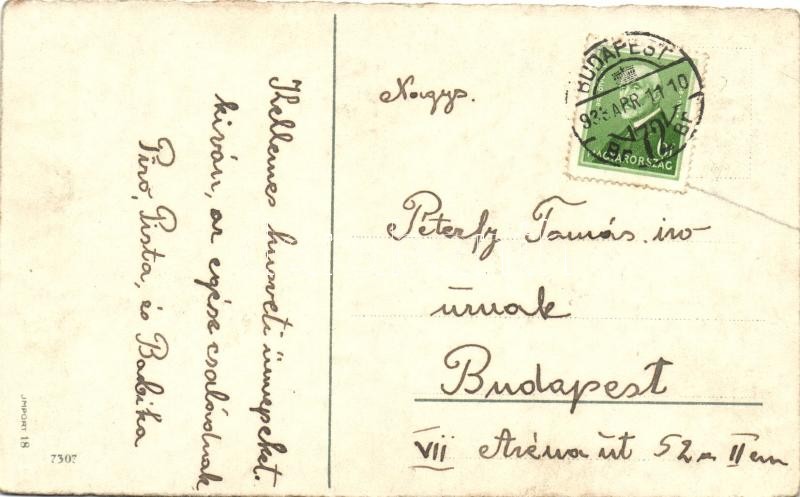 Kellemes husveti ünnepeket.
kiván, az egész családnak
Piró, Pista, és Babika
Nagys.
Péterfy Tamás. iro
úrnak
Budapest
VII Aréna út 52 II em
BUDAPEST
APR 11 10
72
MAGYARORSZÁG
JMPORT 18
7307